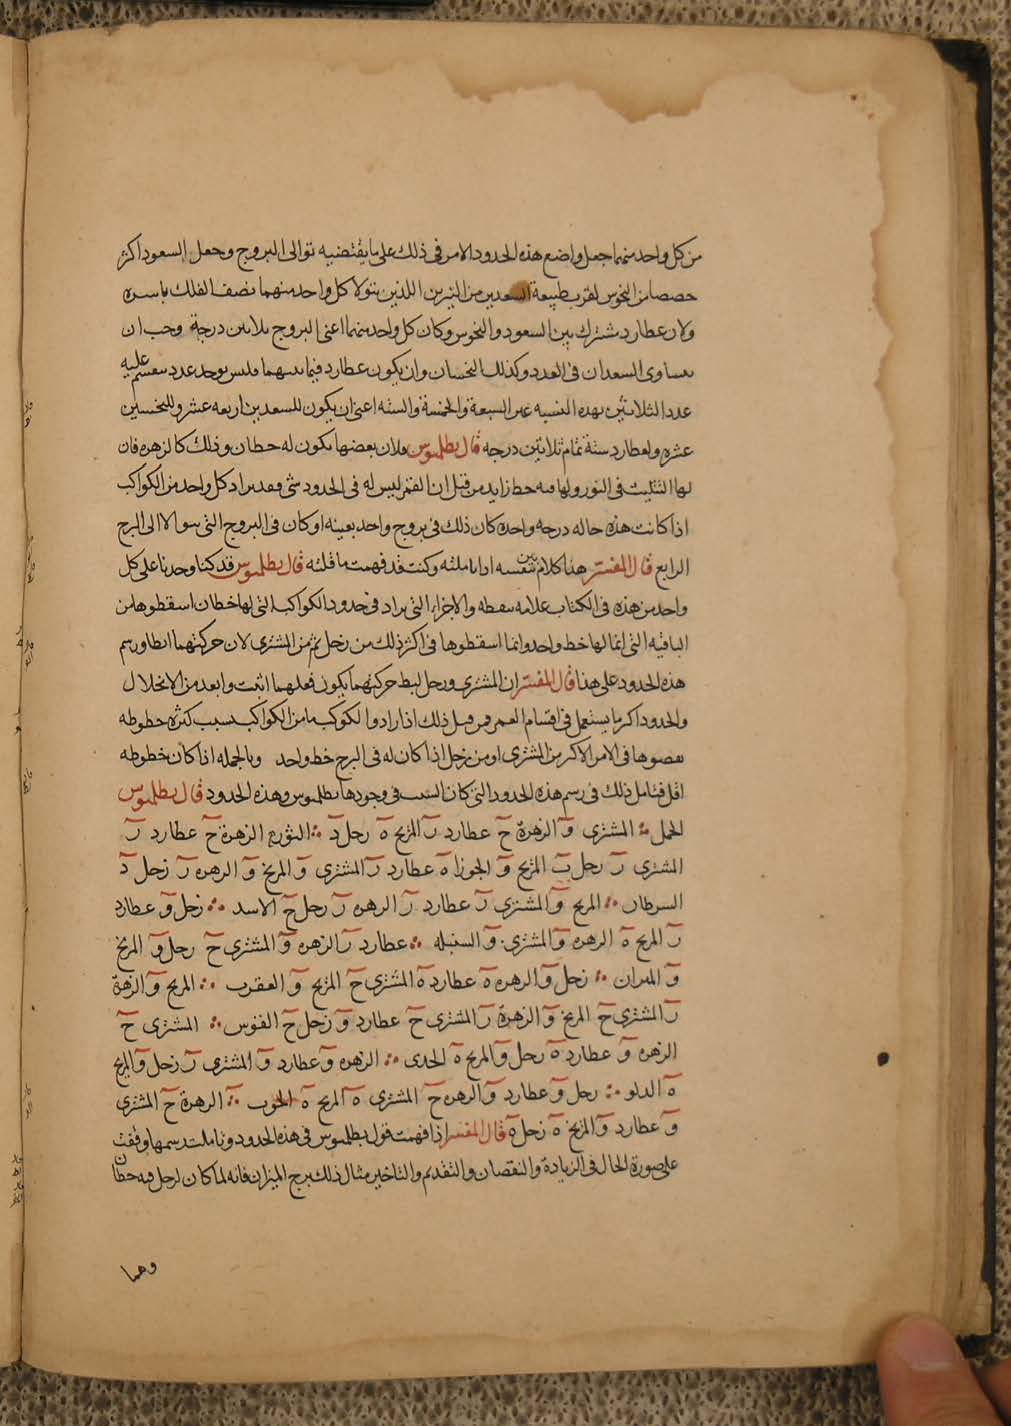 من كل واحد منهما جعل واضع هذه الحدود الامر فى ذلك على ما يقتضيه توالى البروج وجعل السعود اكثر
حصصا من النحوس لقرب طبيعة السعدين من النيرين اللذين يتولا كل واحد منهما نصف الفلك باسره
ولان عطارد مشترك بين السعود والنحوس وكان كل واحد منهما اعنى البروج ثلاثين درجة وجب ان
يتساوى السعدان فى العدد وكذلك النحسان وان يكون عطارد فيما بينهما فليس يوجد عدد ينقسم عليه
عدد الثلاثين بهذه النسبه غير السبعة والخمسة والسته اعنى ان يكون للسعدين اربعه عشر وللنحسين
عشره ولعطارد ستة تمام ثلاثين درجه قال بطلميوس ولان بعضها يكون له حظان وذلك كالزهره فان
لها التثليث فى الثور ولها فيه حظ زايد من قبل ان القمر ليس له فى الحدود شى وقد يزاد كل واحد من الكواكب
اذا كانت هذه حاله درجه واحده كان ذلك فى بروج واحد بعينه او كان فى البروج التى يتوالا الى البرج
الرابع قال المفسر هذا كلام بين بنفسه اذا تاملته وكنت قد فهمت ما قلته قال بطلميوس قد كنا وجدنا على كل
واحد من هذه فى الكتاب علامه بنقطه والاجزاء التى يزاد فى حدود الكواكب التى لها حظان اسقطوها من
الباقيه التى انما لها حظ واحد وانما اسقطوها فى اكثر ذلك من زحل ثم من المشترى لان حركتهما ابطا ورسم
هذه الحدود على هذا قال المفسر ان المشترى وزحل لبط حركتهما يكون فعلهما اثبت وابعد من الانحلال
والحدود اكثر ما يستعمل فى اقسام العمر فمن قبل ذلك اذا زادوا لكوكب ما من الكواكب بسبب كثره حظوظه
نقصوها فى الامر الاكثر من المشترى او من زحل اذا كان له فى البرج حظ واحد وبالجمله اذا كان حظوظه
اقل فتامل ذلك فى رسم هذه الحدود التى كان السبب فى وجودها بطلميوس وهذه الحدود قال بطلميوس
الحمل المشترى و الزهرة ح عطارد ز المريخ ه زحل د الثور الزهرة ح عطارد ز
المشترى ز زحل ب المريخ و الجوزا ه عطارد ز المشترى و المريخ و الزهره ز زحل د
السرطان المريخ و المشترى ز عطارد ز الزهره ز زحل ح الاسد زحل و عطارد
ز المريخ ه الزهره و المشترى و السنبله عطارد ز الزهره و المشترى ح زحل و المريخ
و الميزان زحل و الزهره ه عطارد ه المشترى ح المريخ و العقرب المريخ و الزهرة
ز المشترى ح المريخ و الزهرة ز المشترى ح عطارد و زحل ح القوس المشترى ح
الزهره و عطارد ه زحل و المريخ ه الجدى الزهره و عطارد و المشترى ز زحل و المريخ
ه الدلو زحل و عطارد و الزهره ح المشترى ه المريخ ه الحوت الزهرة ح المشترى
و عطارد و المريخ ه زحل ه قال المفسر اذا فهمت قول بطلميوس فى هذه الحدود وتاملت رسمها وقفت
على صورة الحال فى الزيادة والنقصان والتقديم والتاخير مثال ذلك برج الميزان فانه لما كان لزحل فيه حظان
وهما